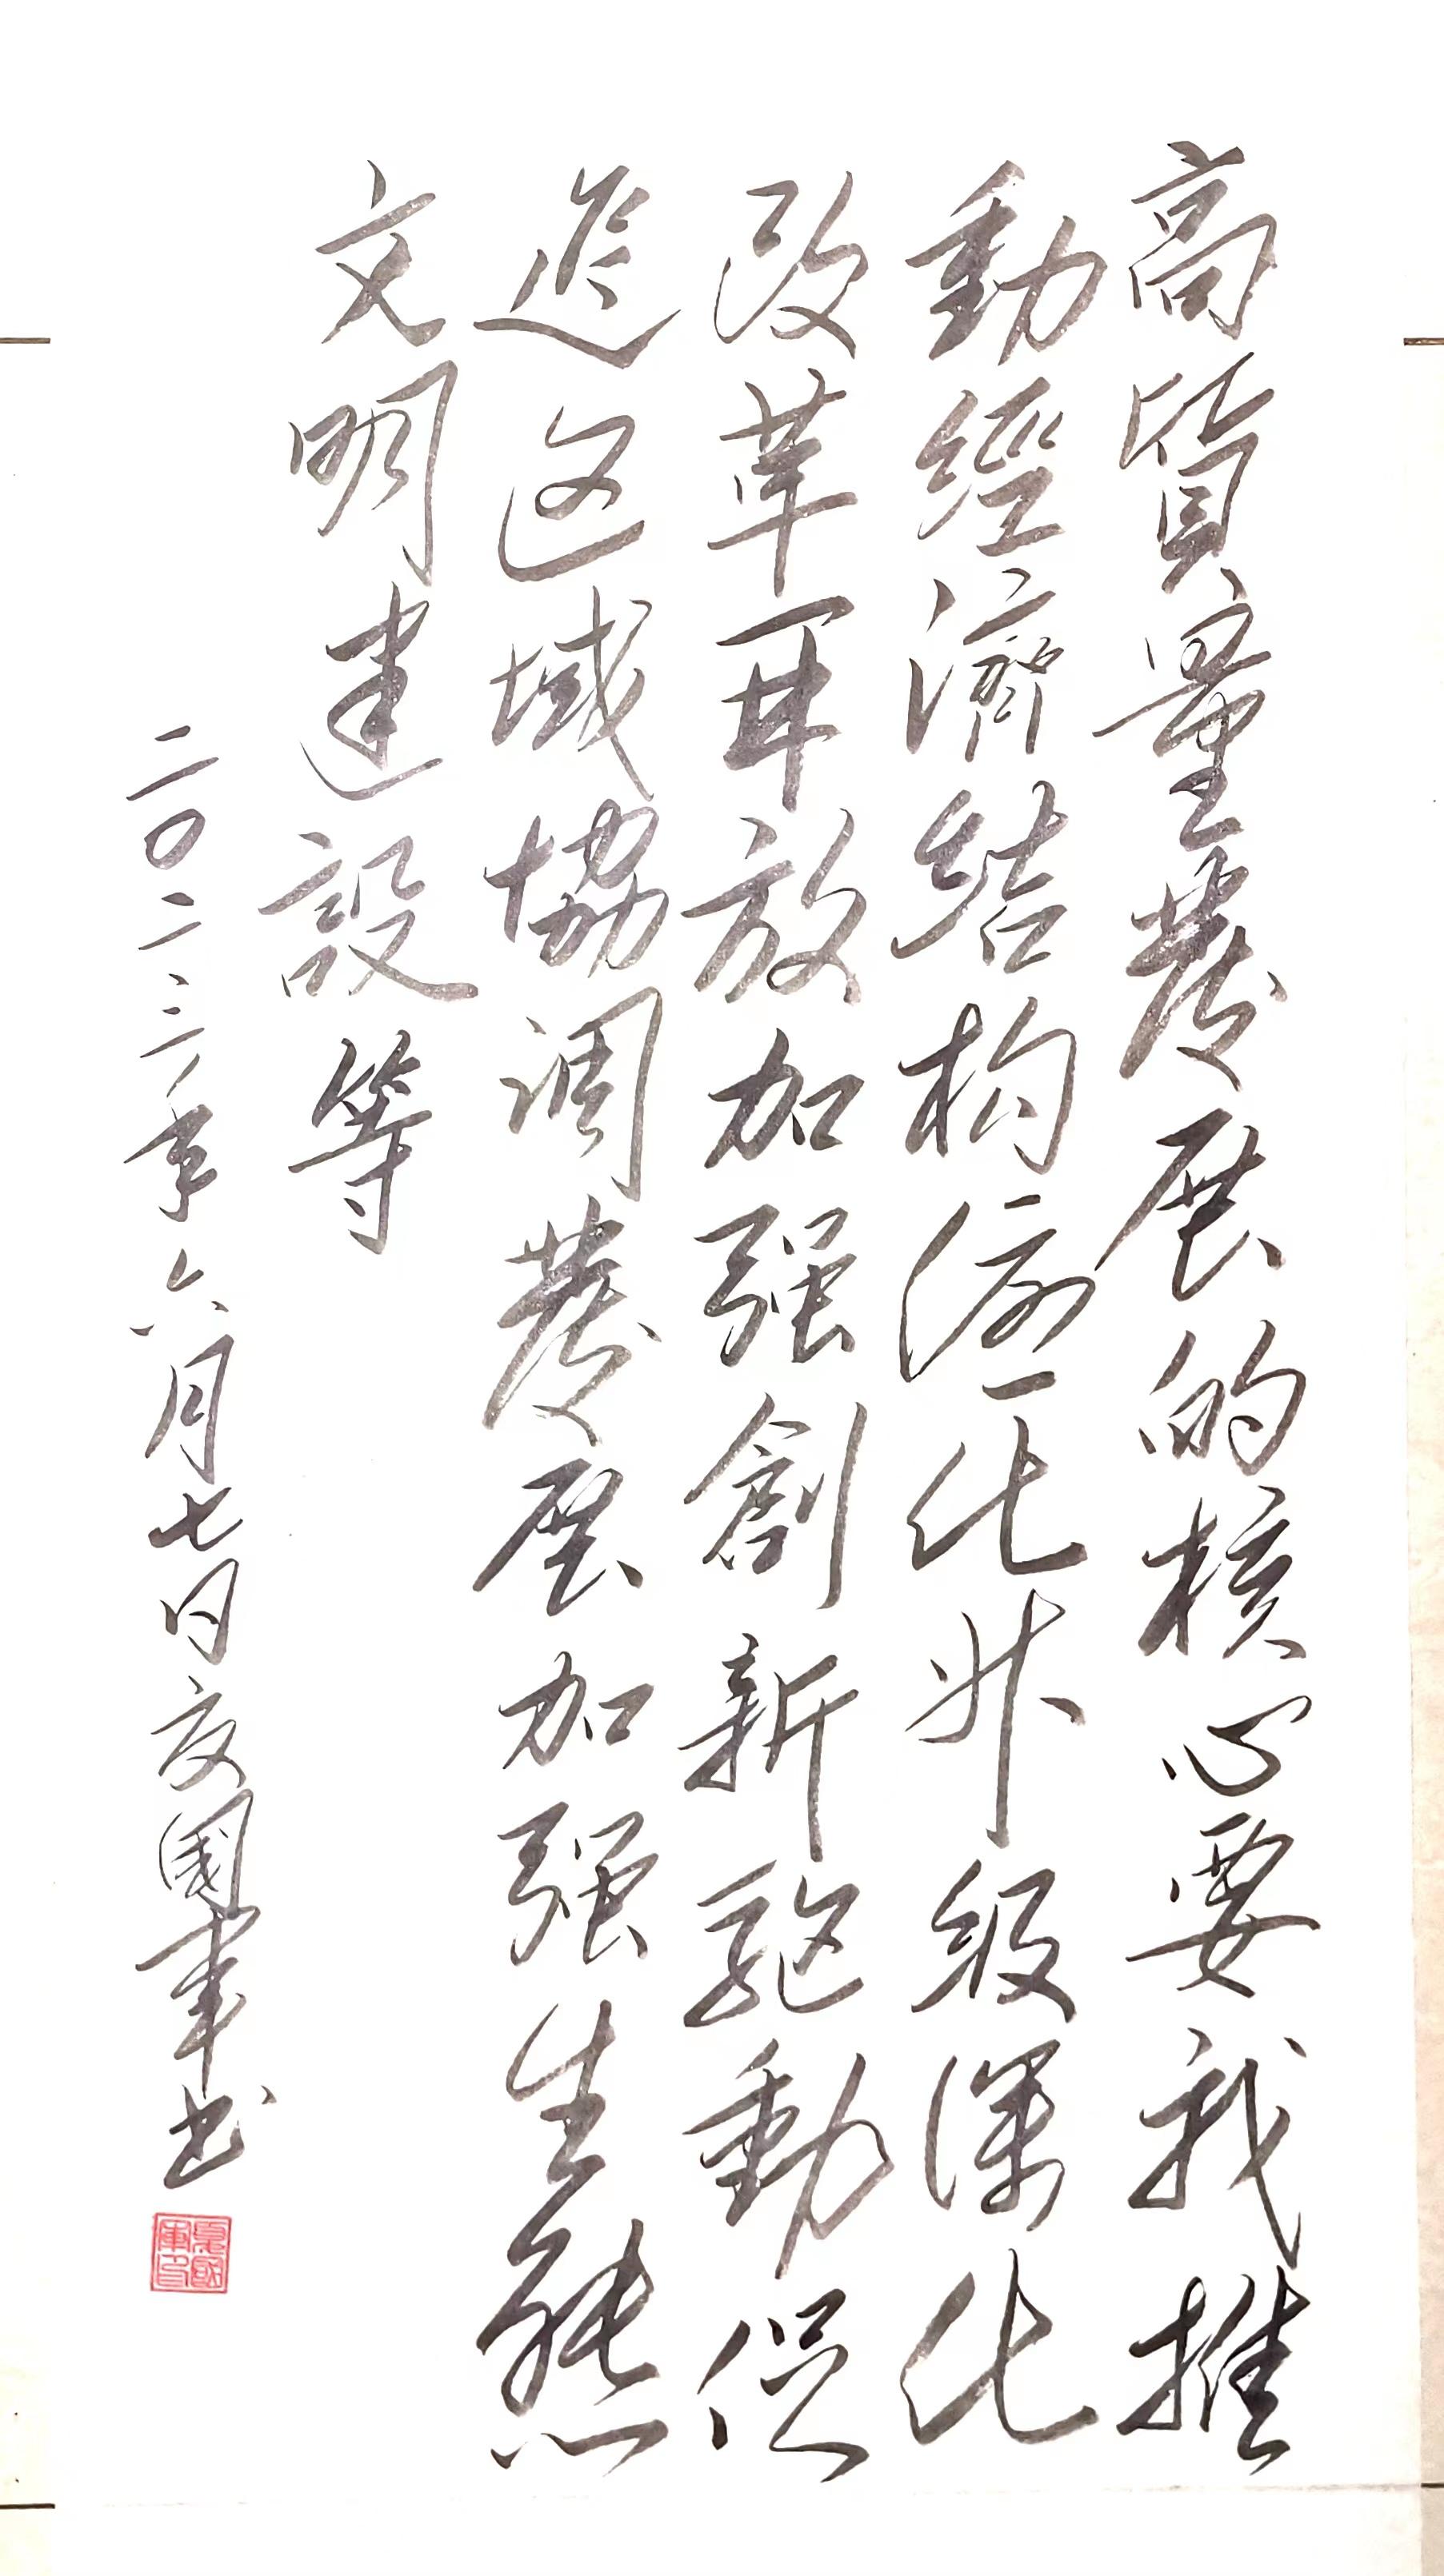 高質量發展的核心要我推
動經濟結构優化升級深化
改革開放加强創新驅動促
進區域協調發展加强生態
文明建設等
二〇二三年六月七日夏國軍书
夏國軍印